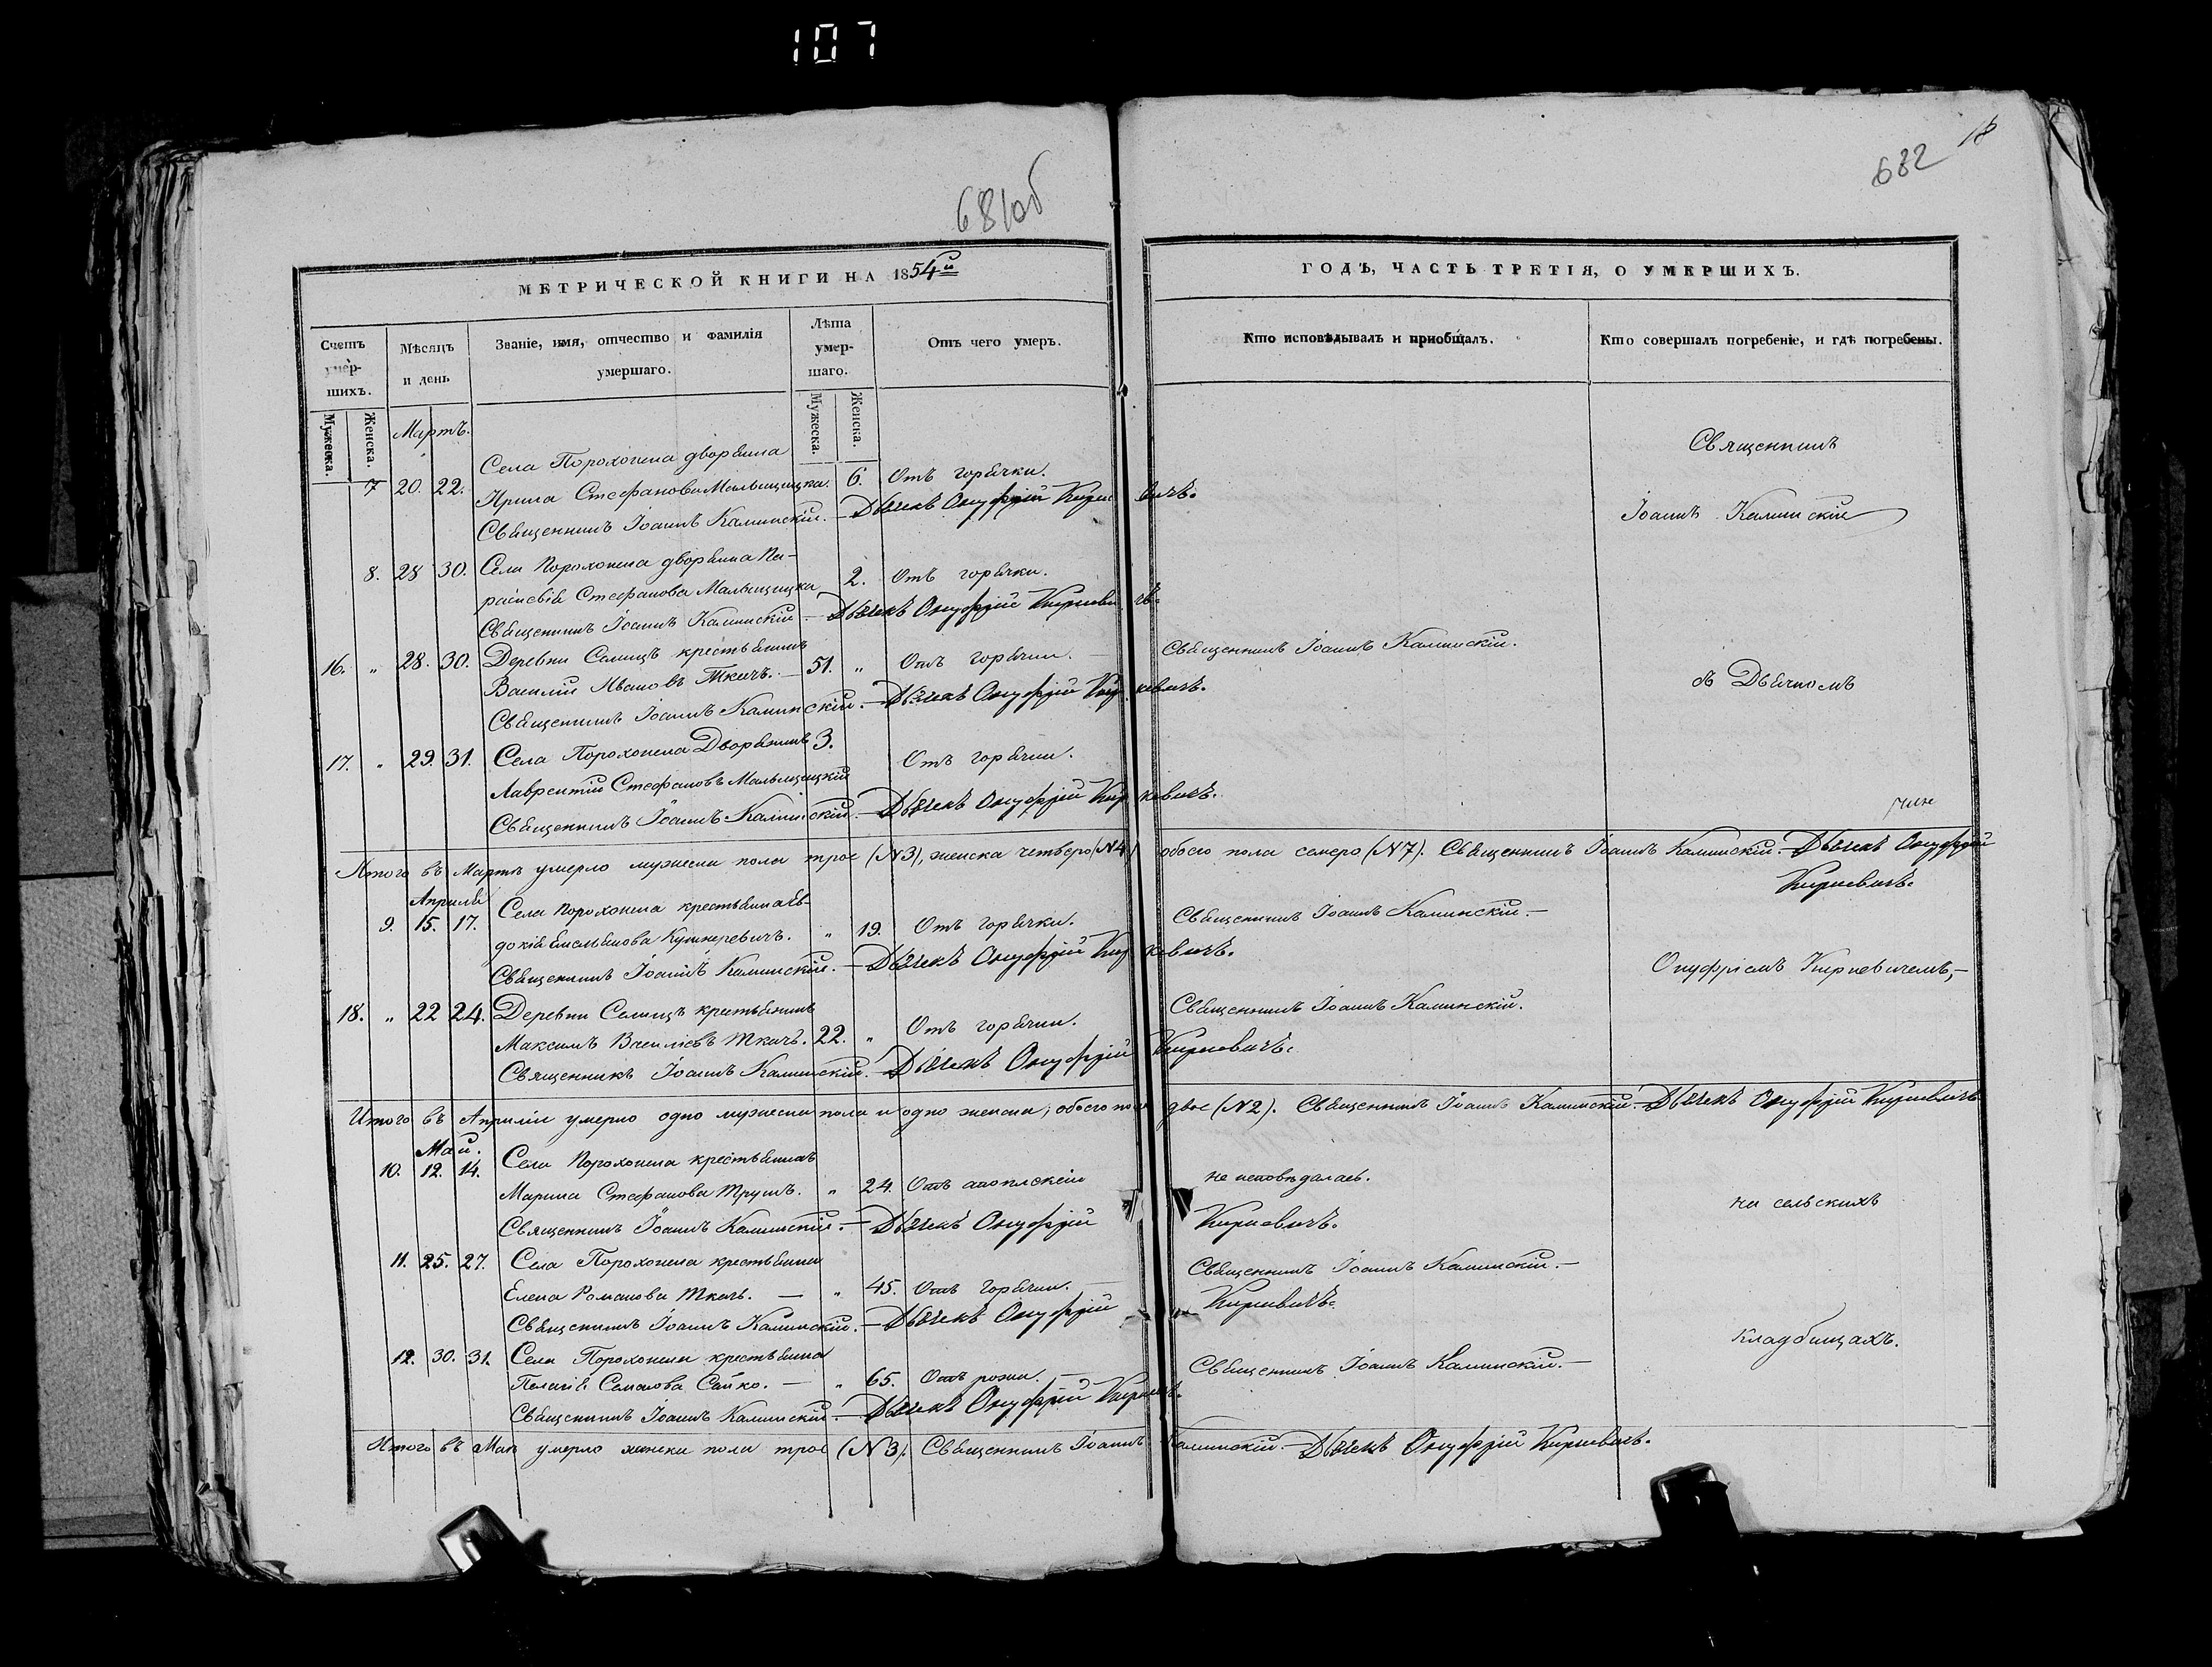 107
681об
18
682
МЕТРИЧЕСКОЙ КНИГИ НА 1854й
ГОДЪ, ЧАСТЬ ТРЕТІЯ, О УМЕРШИХЪ.
Счетъ умер-шихъ.
Мужеска. Женска.
Мѣсяцъ и день
Званіе, имя, отчество и фамилія умершаго.
Лѣта умер-шаго.
Мужеска. Женска.
Отъ чего умеръ.
Кто исповѣдывалъ и пріобщалъ.
Кто совершалъ погребеніе, и гдѣ погребены.
Мартъ.
Села Порохонска дворянка
7 20. 22. Ирина Стефанова Мальщицка. 6. Отъ горячки.
Священникъ Іоаннъ Калинскій. — Дьячекъ Онуфрій Киркевичъ.
Священникъ
Іоаннъ Калинскій
8. 28 30. Села Порохонска дворянка Па-
раскевія Стефанова Мальщицка 2. Отъ горячки.
Священникъ Іоаннъ Калинскій. — Дьячекъ Онуфрій Киркевичъ.
16. „ 28. 30. Деревни Селищъ крестьянинъ
Василій Ивановъ Ткачъ. — 51. „ Отъ горячки. — Священникъ Іоаннъ Калинскій.
Священникъ Іоаннъ Калинскій. — Дьячекъ Онуфрій Киркевичъ.
съ Дьячкомъ
17. „ 29. 31. Села Порохонска Дворянинъ 3. Отъ горячки.
Лаврентій Стефановъ Мальщицкій
Священникъ Іоаннъ Калинскій. — Дьячекъ Онуфрій Киркевичъ.
Итого въ Мартѣ умерло мужеска пола трое (N3), женска четверо (N4) обоего пола семеро (N7). Священникъ Іоаннъ Калинскій. — Дьячекъ Онуфрій
Киркевичъ.
Апрѣль
9. 15. 17. Села Порохонска крестьянка Ев-
докія Емельянова Кушнеревичъ. „ 19. Отъ горячки. Священникъ Іоаннъ Калинскій. —
Священникъ Іоаннъ Калинскій. — Дьячекъ Онуфрій Киркевичъ.
Онуфріемъ Киркевичемъ, —
18. „ 22 24. Деревни Селищъ крестьянинъ
Максимъ Васильевъ Ткачъ. 22. „ Отъ горячки. Священникъ Іоаннъ Калинскій.
Священникъ Іоаннъ Калинскій. Дьячекъ Онуфрій Киркевичъ.
Итого въ Апрѣлѣ умерло одно мужеска пола и одно женска; обоего пола двое (N2). Священникъ Іоаннъ Калинскій. — Дьячекъ Онуфрій Киркевичъ
Май.
10. 12. 14. Села Порохонска крестьянка
Марина Стефанова Трушъ. „ 24. Отъ апоплексіи не исповѣдалась.
Священникъ Іоаннъ Калинскій. — Дьячекъ Онуфрій Киркевичъ.
на сельскихъ
11. 25. 27. Села Порохонска крестьянка
Елена Романова Ткачъ. — „ 45. Отъ горячки. — Священникъ Іоаннъ Калинскій. —
Священникъ Іоаннъ Калинскій. — Дьячекъ Онуфрій Киркевичъ.
12. 30. 31. Села Порохонска крестьянка
Пелагія Семенова Сайко. — „ 65. Отъ рожи. — Священникъ Іоаннъ Калинскій. —
Священникъ Іоаннъ Калинскій. — Дьячекъ Онуфрій Киркевичъ.
кладбищахъ.
Итого въ Маѣ умерло женска пола трое (N3). Священникъ Іоаннъ Калинскій. — Дьячекъ Онуфрій Киркевичъ.